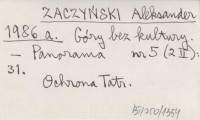 ZACZYŃSKI Aleksander
1986 a. Góry bez kultury.
– Panorama nr 5 (2 II):
31.
Ochrona Tatr.